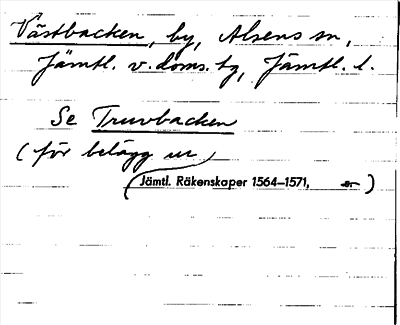 Västbacken, by, Alsens sn,
Jämtl. v. doms. tg, Jämtl. l.
Se Truvbacken
(för belägg ur
Jämtl. Räkenskaper 1564–1571, )